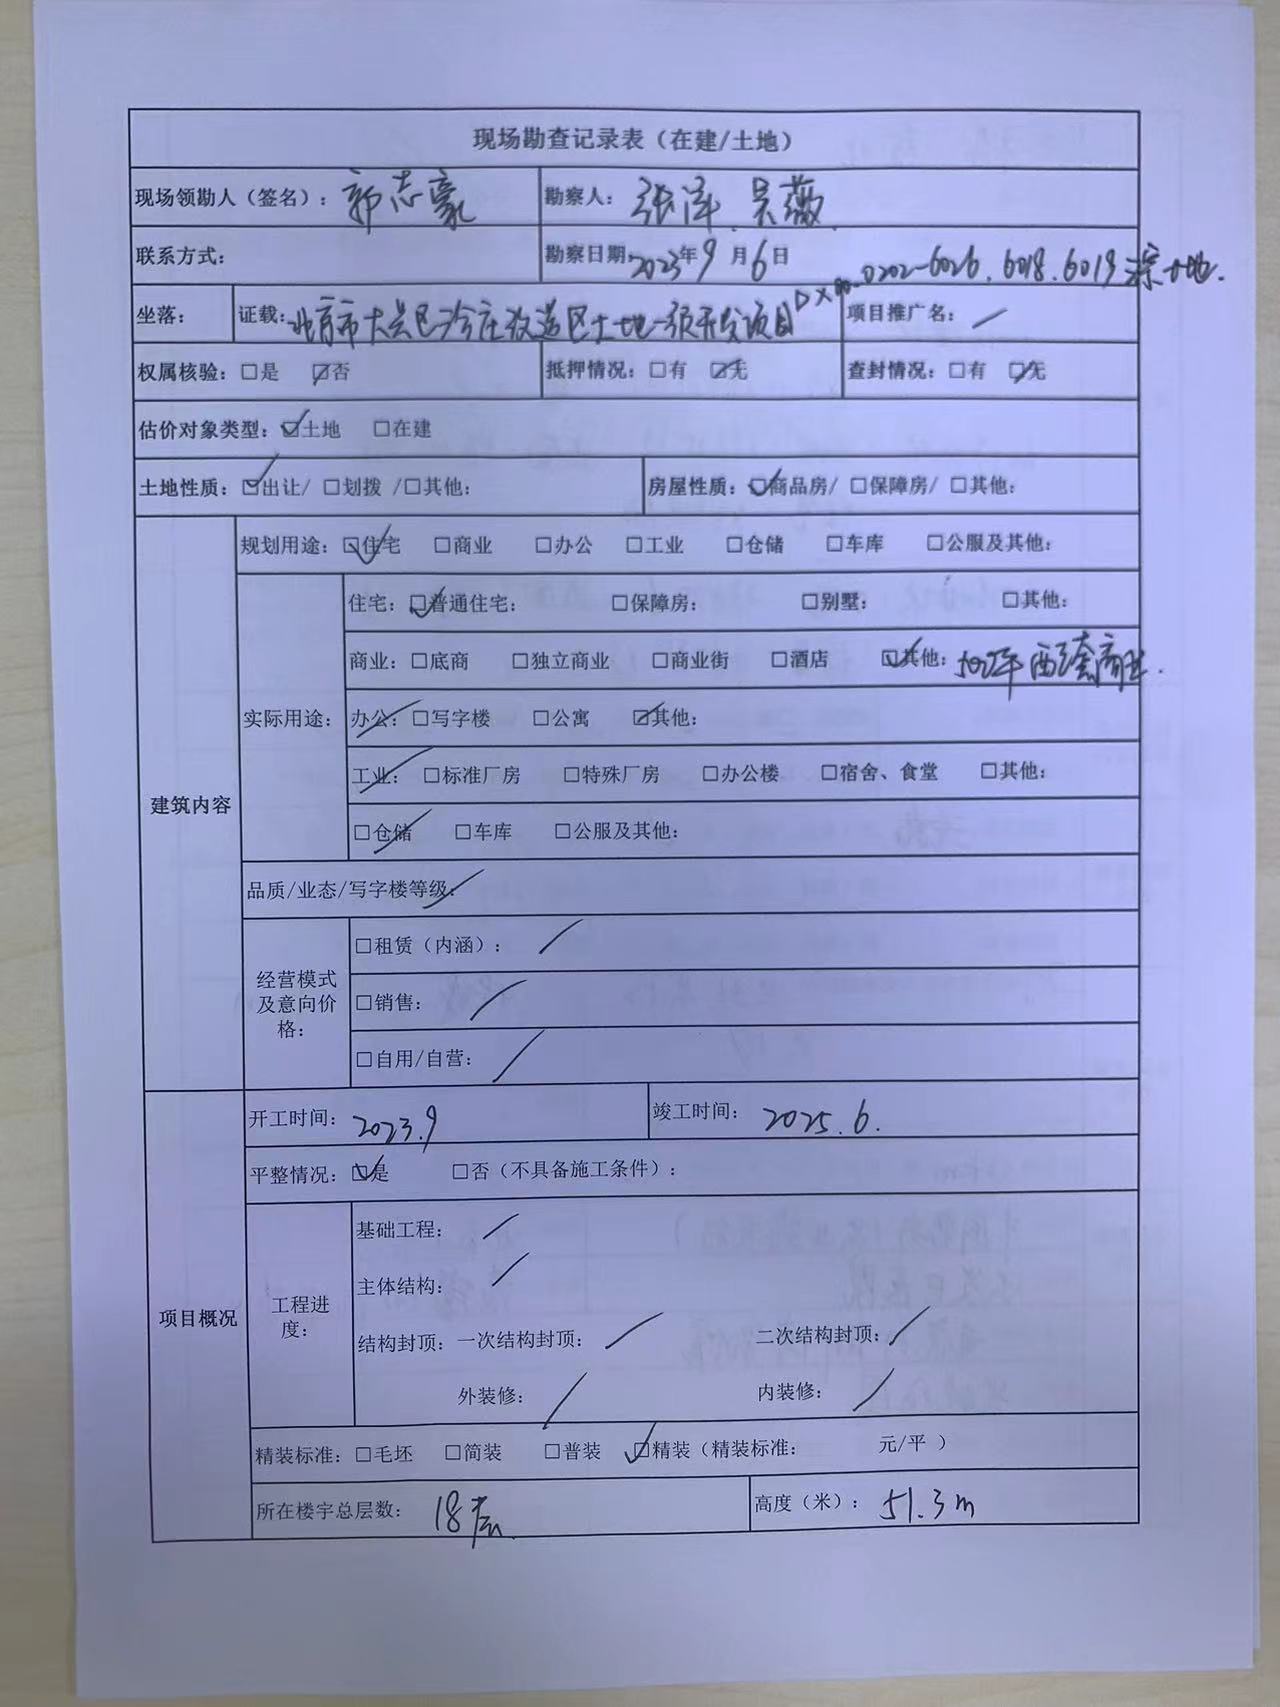 现场勘查记录表（在建/土地）
现场领勘人（签名）：郭志豪 勘察人：张泽 吴薇
联系方式： 勘察日期：2023年9月6日
坐落： 证载：北京市大兴区 庄改造区土地一级开发项目DX00-0202-6026.6018.6019 地. 项目推广名：/
权属核验：□是 ☑否 抵押情况：□有 ☑无 查封情况：□有 ☑无
估价对象类型：☑土地 □在建
土地性质：☑出让/ □划拨 /□其他： 房屋性质：☑商品房/ □保障房/ □其他：
建筑内容
规划用途：☑住宅 □商业 □办公 □工业 □仓储 □车库 □公服及其他：
实际用途：
住宅：☑普通住宅： □保障房： □别墅： □其他：
商业：□底商 □独立商业 □商业街 □酒店 ☑其他： 配套商业.
办公：□写字楼 □公寓 ☑其他：
工业：□标准厂房 □特殊厂房 □办公楼 □宿舍、食堂 □其他：
□仓储 □车库 □公服及其他：
品质/业态/写字楼等级：/
经营模式
及意向价
格：
□租赁（内涵）：/
□销售：/
□自用/自营：/
项目概况
开工时间：2023.9 竣工时间：2025.6.
平整情况：☑是 □否（不具备施工条件）：
工程进
度：
基础工程：/
主体结构：/
结构封顶：一次结构封顶：/ 二次结构封顶：/
外装修：/ 内装修：/
精装标准：□毛坯 □简装 □普装 ☑精装（精装标准： 元/平 ）
所在楼宇总层数：18层 高度（米）：51.3m